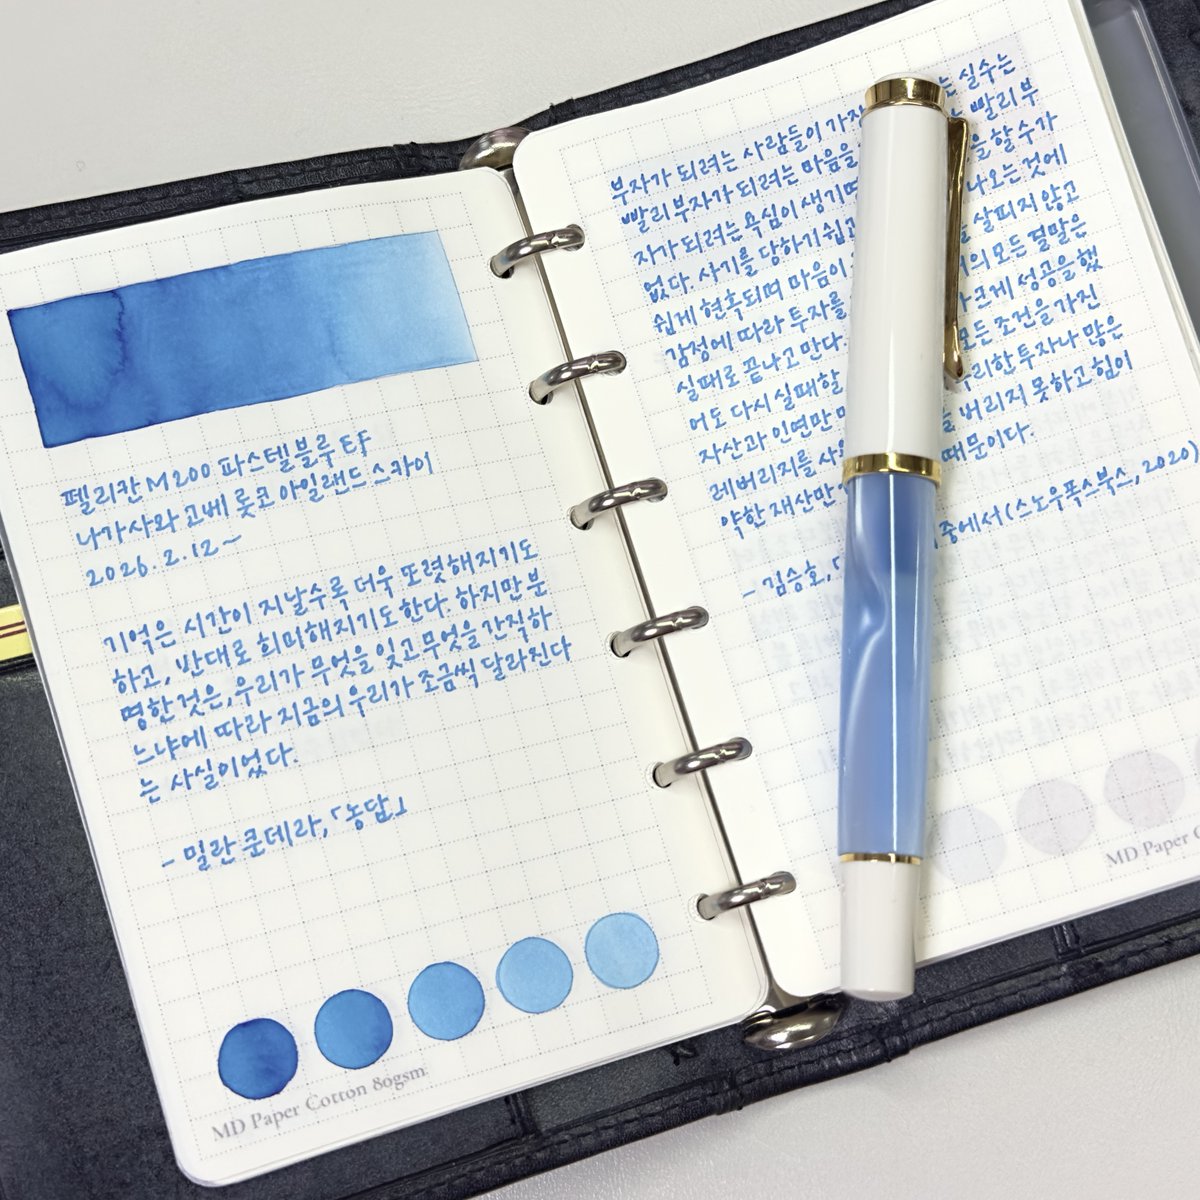 펠리칸 M200 파스텔블루 EF
나가사와 고베 롯코 아일랜드 스카이
2026. 2. 12~
기억은 시간이 지날수록 더욱 또렷해지기도
하고, 반대로 희미해지기도 한다. 하지만 분
명한 것은, 우리가 무엇을 잊고 무엇을 간직하
느냐에 따라 지금의 우리가 조금씩 달라진다
는 사실이었다.
- 밀란 쿤데라, 「농담」
MD Paper Cotton 80gsm
부자가 되려는 사람들이 가장 는 실수는
빨리 부자가 되려는 마음을 빨리 부
자가 되려는 욕심이 생기면 을 할 수가
없다. 사기를 당하기 쉽고 나오는 것에
쉽게 현혹되며 마음이 살피지 않고
감정에 따라 투자를 의 모든 결말은
실패로 끝나고 만다. 크게 성공을 했
어도 다시 실패할 모든 조건을 가진
자산과 인연만 무리한 투자나 많은
레버리지를 사용 버리지 못하고 힘이
약한 재산만 때문이다.
- 김승호, 중에서 (스노우폭스북스, 2020)
MD Paper